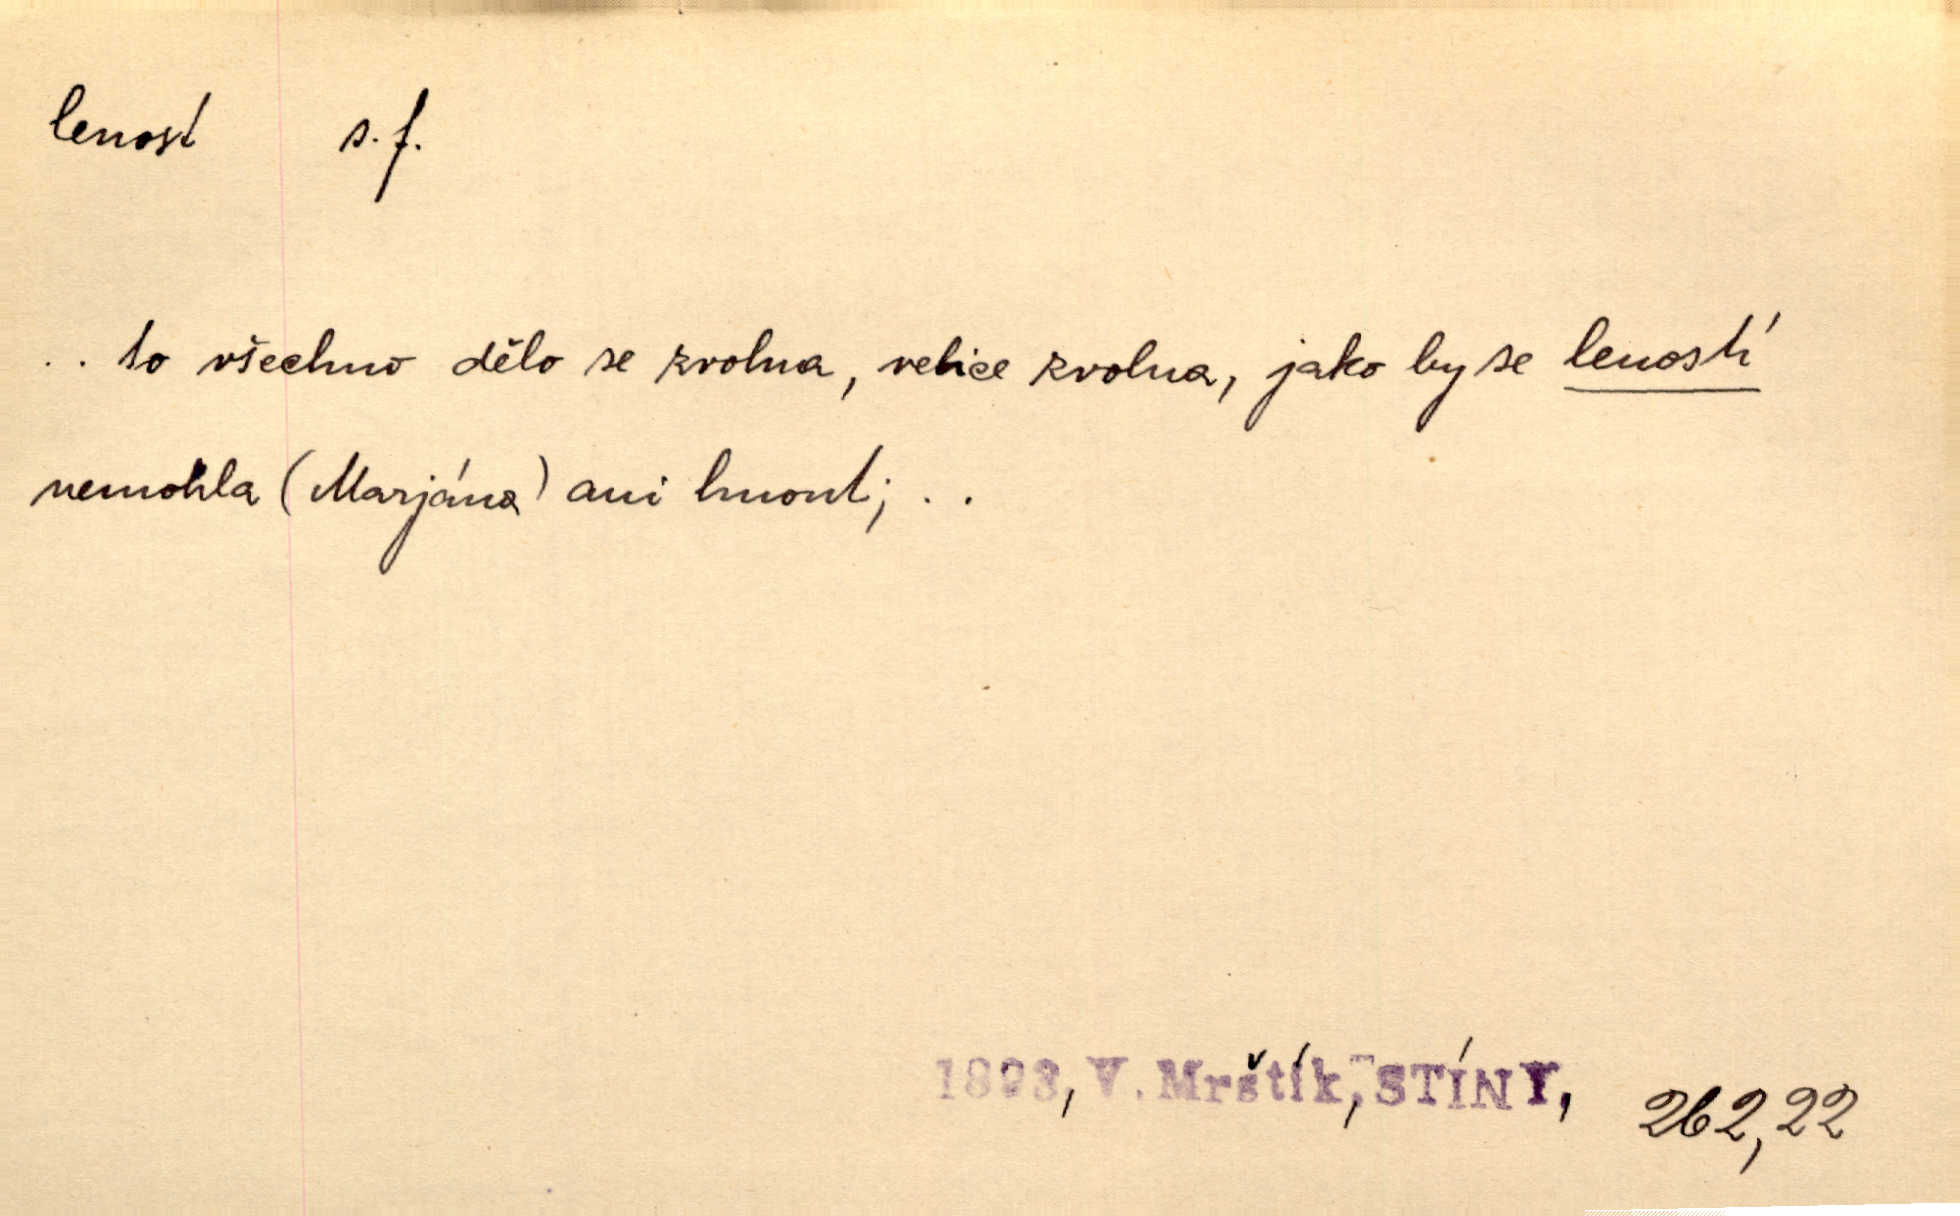 lenost s.f.
.. to všechno dělo se zvolna, velice zvolna, jako by se leností
nemohla (Marjána) ani hnout; ..
1893, V. Mrštík, STÍNY, 262,22